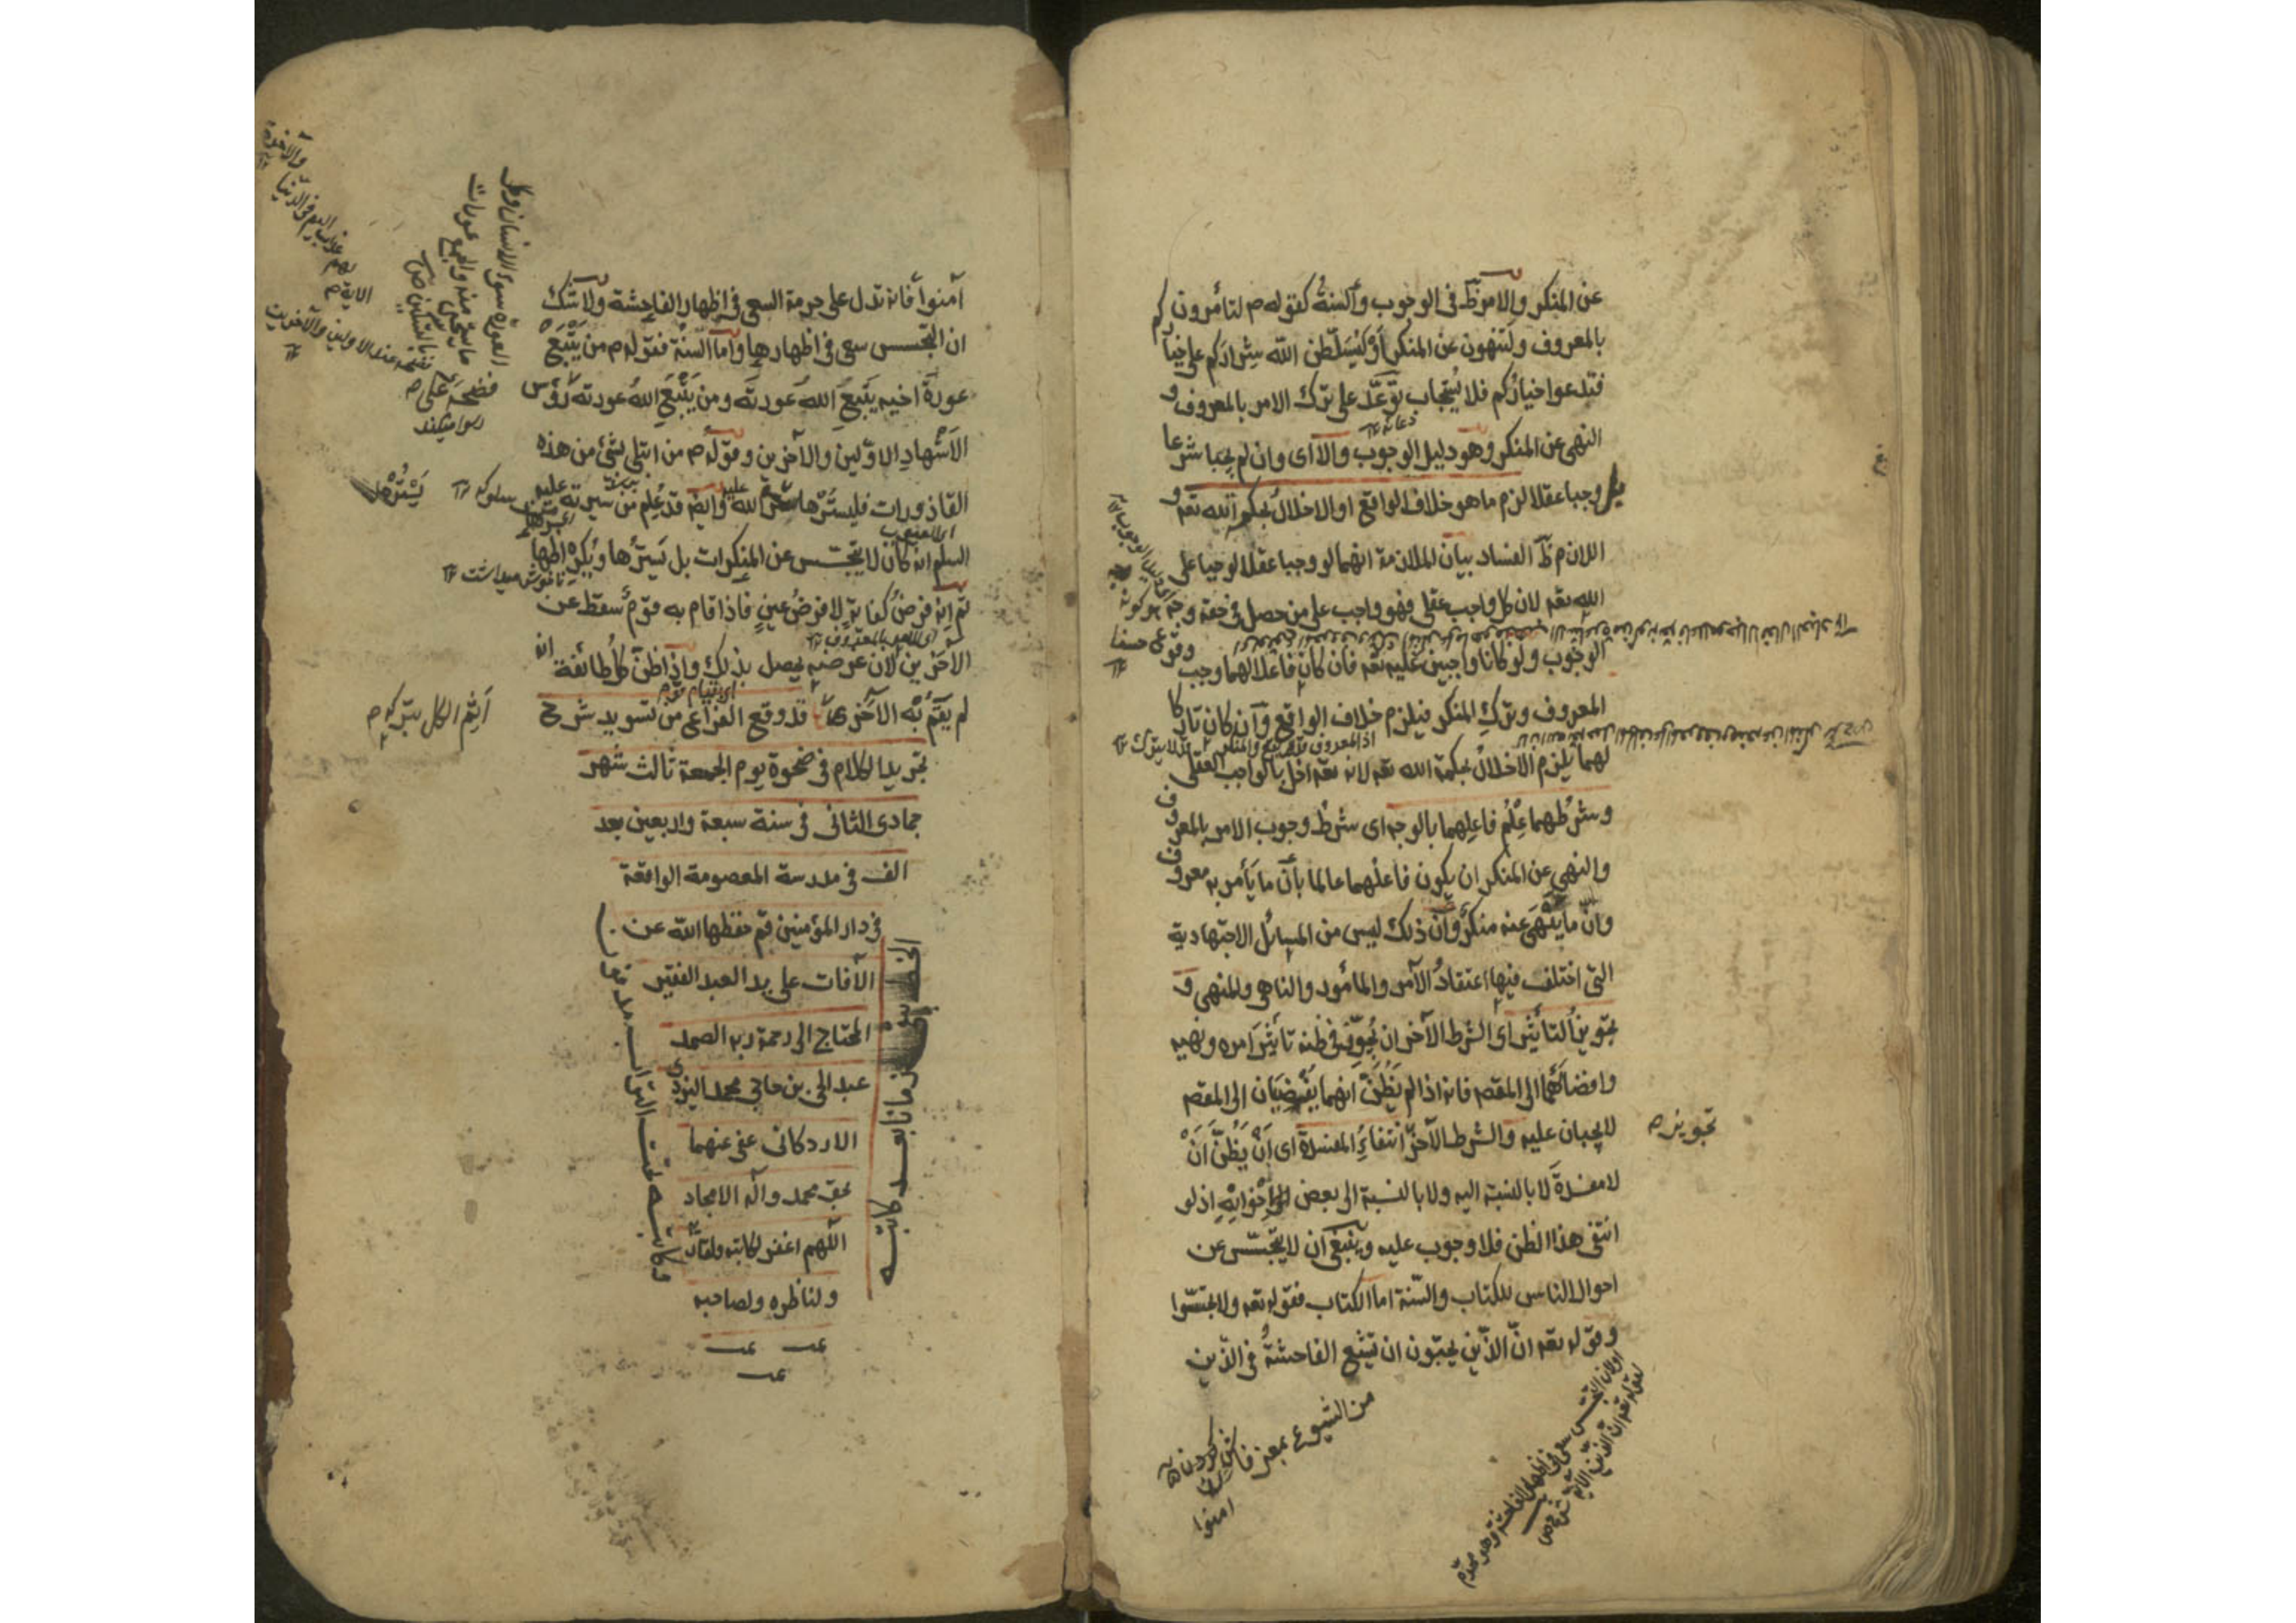 عن المنكر والامر ظ في الوجوب والسنة كقوله ص لتأمرون
بالمعروف ولتنهون عن المنكر أو ليسلطن الله شراركم على خياركم
فتدعوا خياركم فلا يستجاب توعد على ترك الامر بالمعروف و
النهي عن المنكر وهو دليل الوجوب والا اى وان لم يجبا شرعا
بل وجبا عقلا لزم ما هو خلاف الواقع او الاخلال بحكم الله تعه و
اللازم ظ الفساد بيان الملازمة انهما لو وجبا عقلا لوجبا على
الله تعه لان كل واجب عقلى فهو واجب على من حصل في حقه وجه
الوجوب ولو كانا واجبين عليه تعه فان كان فاعلا لهما وجب
المعروف وترك المنكر فيلزم خلاف الواقع وان كان تاركا
لهما يلزم الاخلال بحكمة الله تعه لانه تعه اخل بالواجب العقلى
وشرطهما علم فاعلهما بالوجه اى شرط وجوب الامر بالمعروف
والنهى عن المنكر ان يكون فاعلهما عالما بأن ما يأمر به معروف
وان ما ينهى عنه منكر وان ذلك ليس من المسائل الاجتهادية
التى اختلف فيها اعتقاد الآمر والمأمور والناهى والمنهى و
تجويز التأثير اى الشرط الآخر ان يجوز في ظنه تأثير امره ونهيه
وافضائهما الى المقصد فانه اذا لم يظن انهما يفضيان الى المقصد
لا يجبان عليه والشرط الآخر انتفاء المفسدة اى ان يظن أن
لا مفسدة لا بالنسبة اليه ولا بالنسبة الى بعض اخوانه اذ لو
انتفى هذا الظن فلا وجوب عليه وينبغى ان لا يتجسس عن
احوال الناس للكتاب والسنة اما الكتاب فقوله تعه ولا تجسسوا
وقوله تعه ان الذين يحبون ان تشيع الفاحشة في الذين
تجويزه
من الشيوع بمعنى فاش كردن
امنوا
آمنوا فانه تدل على حرمة السعى في اظهار الفاحشة ولا شك
ان التجسس سعى في اظهارها واما السنة فقوله ص من يتبع
عورة اخيه يتبع الله عورته ومن يتبع الله عورته
الاشهاد الاولين والآخرين وقوله ص من ابتلى بشئ من هذه
القاذورات فليسترها بستر الله وايضا قد علم من سيرته عليه
السلم انه كان لا يتجسس عن المنكرات بل يسترها ويكره اظهارها
ثم انه فرض كفاية لا فرض عين فاذا قام به قوم سقط عن
الآخرين لان غرضه يحصل بذلك واذا ظن كل طائفة انه
لم يقم به الآخر قد وقع الفراغ من تسويد شرح
تجريد الكلام في ضحوة يوم الجمعة ثالث شهر
جمادى الثانى في سنة سبعة واربعين بعد
الف في مدرسة المعصومة الواقعة
في دار المؤمنين قم حفظها الله عن
الآفات على يد العبد الفقير
المحتاج الى رحمة ربه الصمد
عبد الحى بن حاجى محمد اليزدى
الاردكانى عفى عنهما
بحق محمد وآله الامجاد
اللهم اغفر لكاتبه ولقاريه
ولناظره ولصاحبه
الخط يبقى زمانا بعد كاتبه
وكاتبه تحت التراب مدفون
يسترها
اثم الكل بتركه
رسوا ميكند